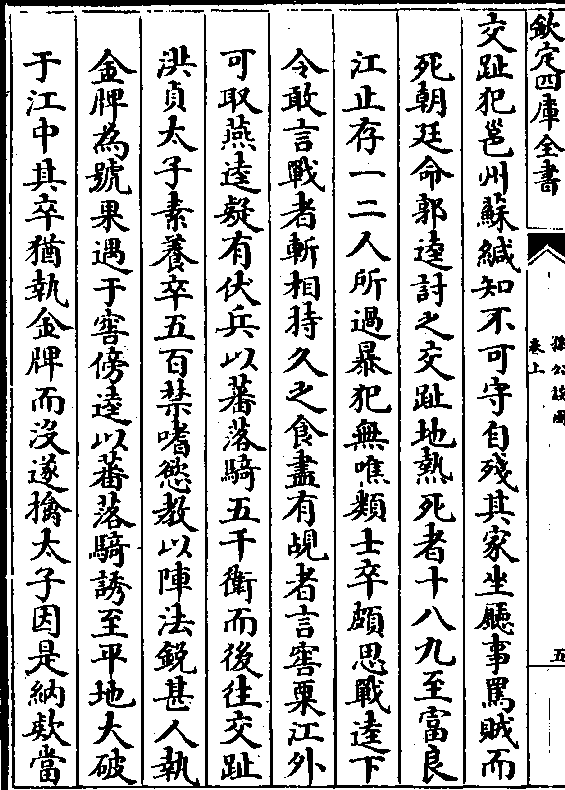 欽定四庫全書
孫公談圃
卷上
五
交趾犯邕州蘇緘知不可守自殘其家坐廳事罵賊而
死朝廷命郭逵討之交趾地熱死者十八九至富良
江止存一二人所過暴犯無噍類士卒頗思戰逵下
令敢言戰者斬相持久之食盡有覘者言窖粟江外
可取燕逵疑有伏兵以蕃落騎五千衛而後往交趾
洪貞太子素養卒五百禁嗜慾教以陣法鋭甚人執
金牌為號果遇于窖傍逵以蕃落騎誘至平地大破
于江中其卒猶執金牌而沒遂擒太子因是納欵當